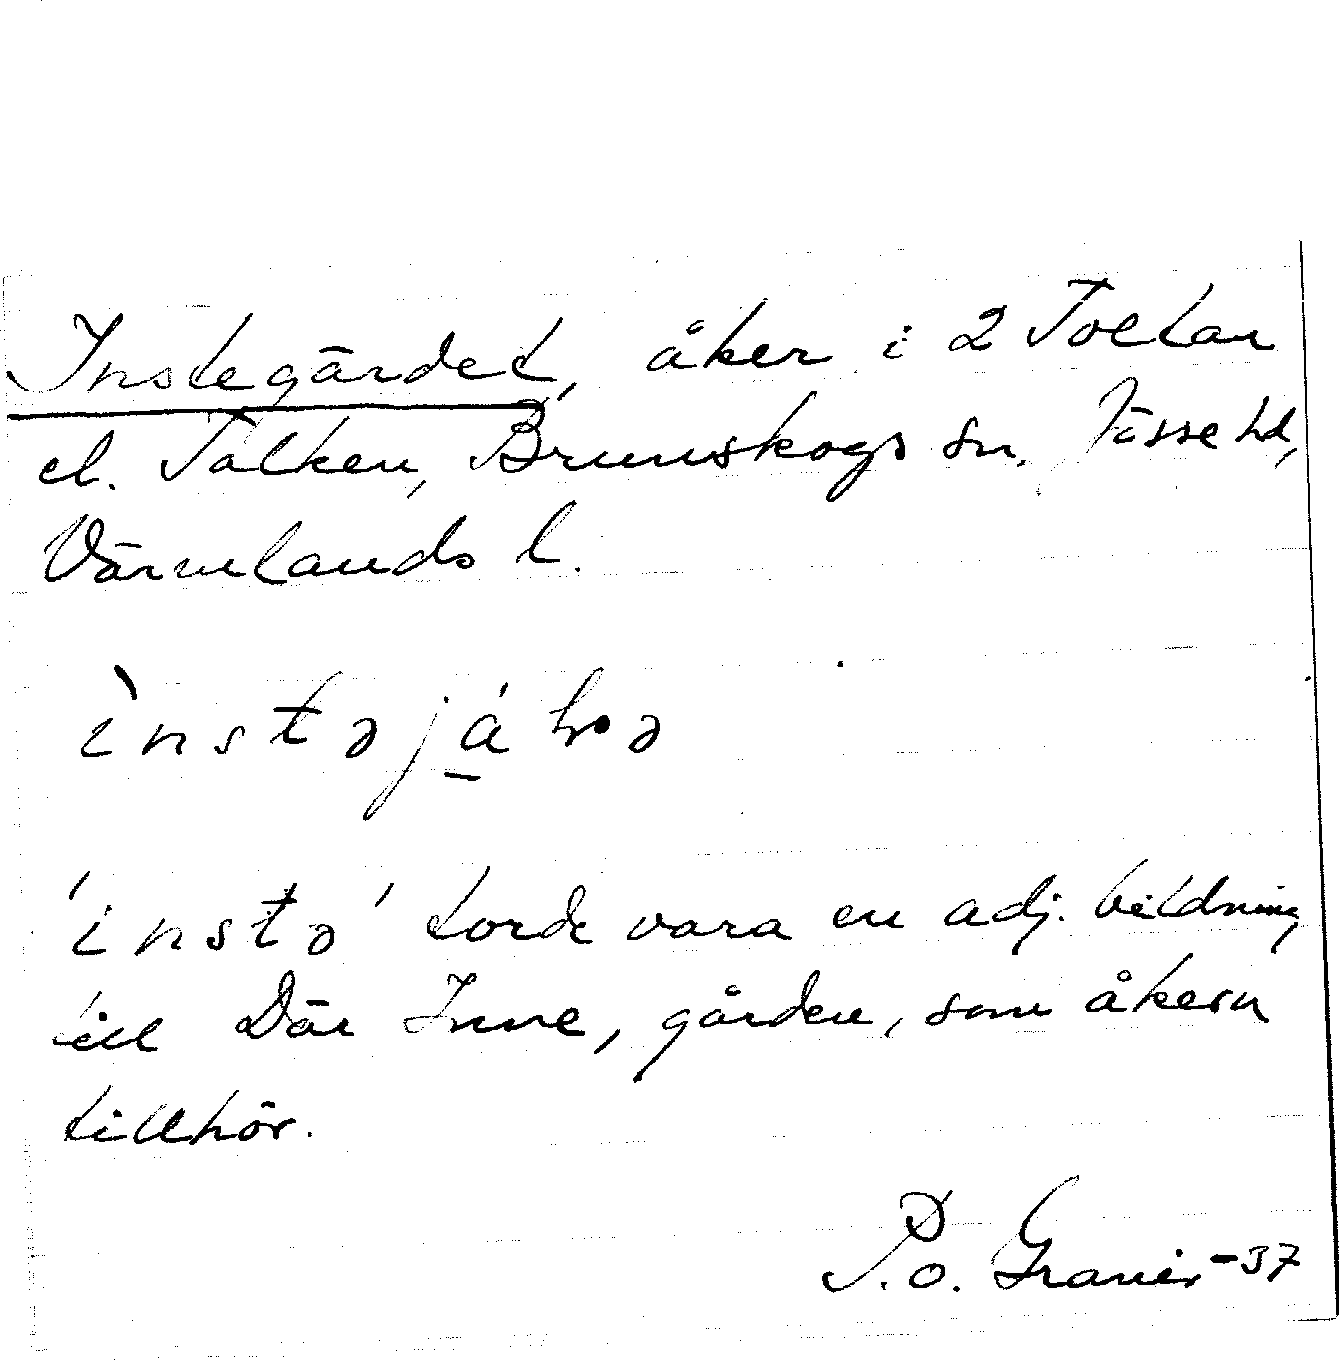 Instegärdet, åker i 2 Toltan
el. Tolken, Brunskogs sn. Jösse hd,
Värmlands l.
ìnstəjáhə
'instə' torde vara en adj. bildning
till Där Inne, gården, som åkern
tillhör.
P.O. Granér -37